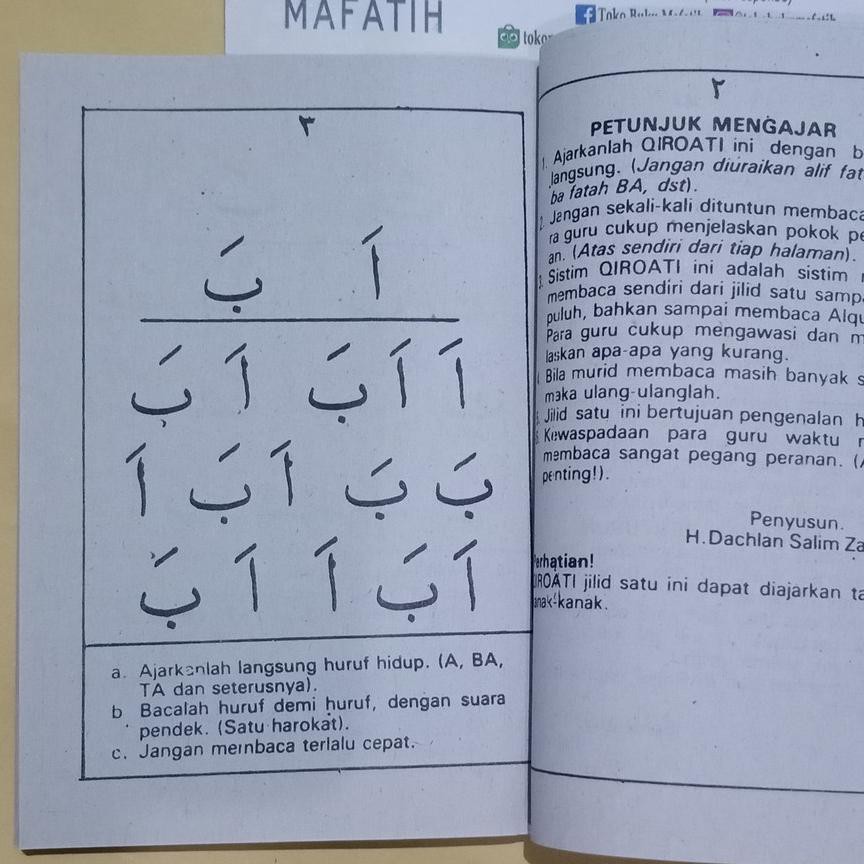 MAFATIH
٢
PETUNJUK MENGAJAR
1. Ajarkanlah QIROATI ini dengan b
langsung. (Jangan diuraikan alif fat
ba fatah BA, dst).
2. Jangan sekali-kali dituntun membaca
ra guru cukup menjelaskan pokok pe
an. (Atas sendiri dari tiap halaman).
3. Sistim QIROATI ini adalah sistim
membaca sendiri dari jilid satu samp
puluh, bahkan sampai membaca Alqu
Para guru cukup mengawasi dan m
laskan apa-apa yang kurang.
Bila murid membaca masih banyak s
maka ulang-ulanglah.
Jilid satu ini bertujuan pengenalan h
Kewaspadaan para guru waktu
membaca sangat pegang peranan. (
penting!).
Penyusun.
H.Dachlan Salim Za
Perhatian!
QIROATI jilid satu ini dapat diajarkan ta
anak-kanak.
٣
اَ بَ
اَ اَ بَ اَ بَ
بَ بَ اَ بَ اَ
اَ بَ اَ اَ بَ
a. Ajarkanlah langsung huruf hidup. (A, BA,
TA dan seterusnya).
b. Bacalah huruf demi huruf, dengan suara
pendek. (Satu harokat).
c. Jangan membaca terlalu cepat.